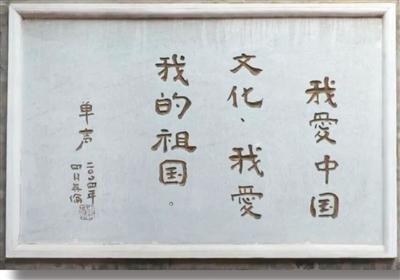 我爱中国
文化、我爱
我的祖国。
单声
二〇〇四年
四月